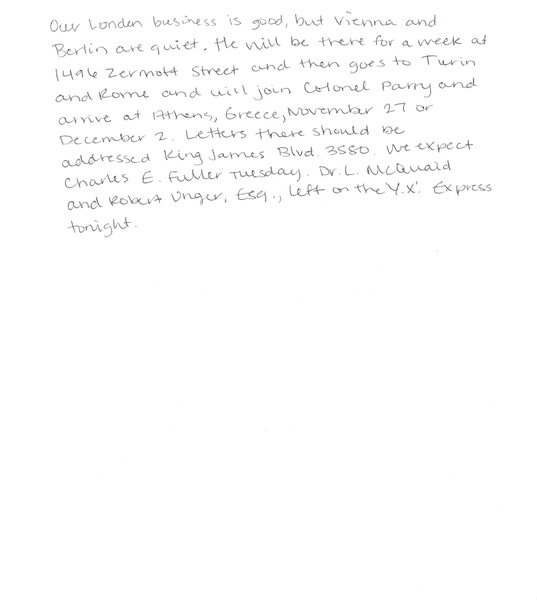 Our London business is good, but Vienna and
Berlin are quiet. He will be there for a week at
1496 Zermott Street and then goes to Turin
and Rome and will join Colonel Parry and
arrive at Athens, Greece, November 27 or
December 2. Letters there should be
addressed King James Blvd. 3580. We expect
Charles E. Fuller Tuesday. Dr. L. McQuaid
and Robert Unger, Esq., left on the 'Y.X.' Express
tonight.